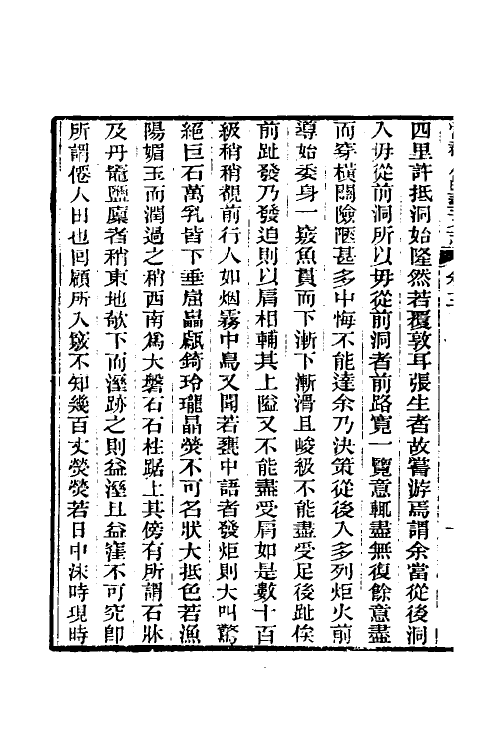 四里許抵洞始隆然若覆敦耳張生者故嘗游焉謂余當從後洞
入毋從前洞所以毋從前洞者前路寬一覽意輒盡無復餘意盡
而穿橫關險隘甚多中悔不能達余乃決策從後入多列炬火前
導始委身一竅魚貫而下漸下漸滑且峻級不能盡受足後趾俟
前趾發乃發迫則以肩相輔其上隘又不能盡受肩如是數十百
級稍稍覩前行人如烟霧中鳥又聞若甕中語者發炬則大叫驚
絕巨石萬乳皆下垂崫嵓甗錡玲瓏晶熒不可名狀大抵色若漁
陽媚玉而潤過之稍西南為大磐石石柱踞上其傍有所謂石牀
及丹竈鹽廩者稍東地欹下而溼跡之則益溼且益窪不可究卽
所謂僊人田也回顧所入竅不知幾百丈熒熒若日中沬時現時